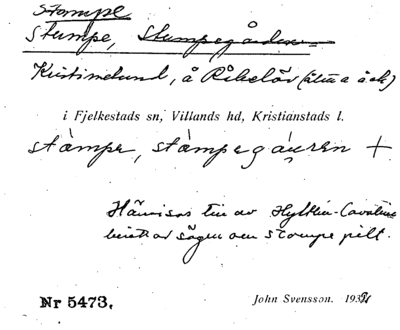 Stampe
Stampe, Stampegården
Kristinelund, å Råbelöv
i Fjelkestads sn, Villands hd, Kristianstads l.
stàmpe, stàmpegáuren +
Hänvisas till av Hyltén-Cavallius
sägen om Stompe pilt.
Nr 5473.
John Svensson. 193